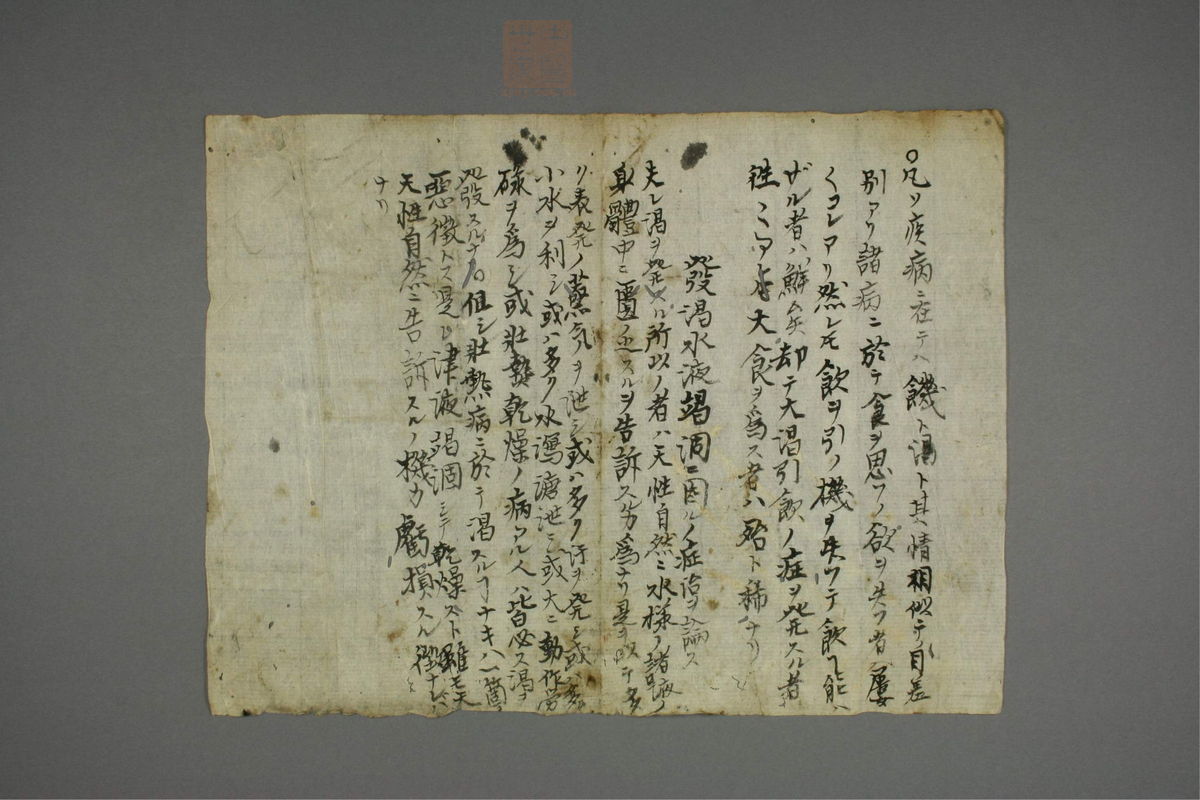 ○凡ソ疾病ニ在テハ饑ト渇ト其情相似テ自差
別アリ諸病ニ於テ食ヲ思フノ欲ヲ失フ者屢
〱コレアリ然レ𪜈飲ヲ引ノ機ヲ失ツテ飲ム能ハ
ザル者ハ鮮矣却テ大渇引飲ノ症ヲ発スル者
徃〻アリ大食ヲ為ス者ハ殆ト稀ナリ
発渇水液竭涸ニ因ルノ症治ヲ論ス
夫レ渇ヲ発スル所以ノ者ハ天性自然ニ水様ノ諸液ノ
身體中ニ匱乏スルヲ告訴スル為ナリ是ヲ以テ多
リ表発ノ蒸気ヲ泄シ或ハ多ク汗ヲ発シ或ハ多
小水ヲ利シ或ハ多ク水瀉溏泄シ或大ニ動作労
碌ヲ為シ或壮熱乾燥ノ病アル人ハ皆必ス渇ヲ
発スルナリ但シ壮熱病ニ於テ渇スルヿナキハ一箇ノ
悪徴トス是レ津液竭涸シテ乾燥スト雖モ天
天性自然ニ告訴スルノ機力虧損スル徴ナレハ
ナリ